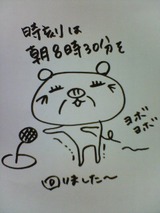 時刻は
朝8時30分を
ヨボ
ヨボ
回りました〜